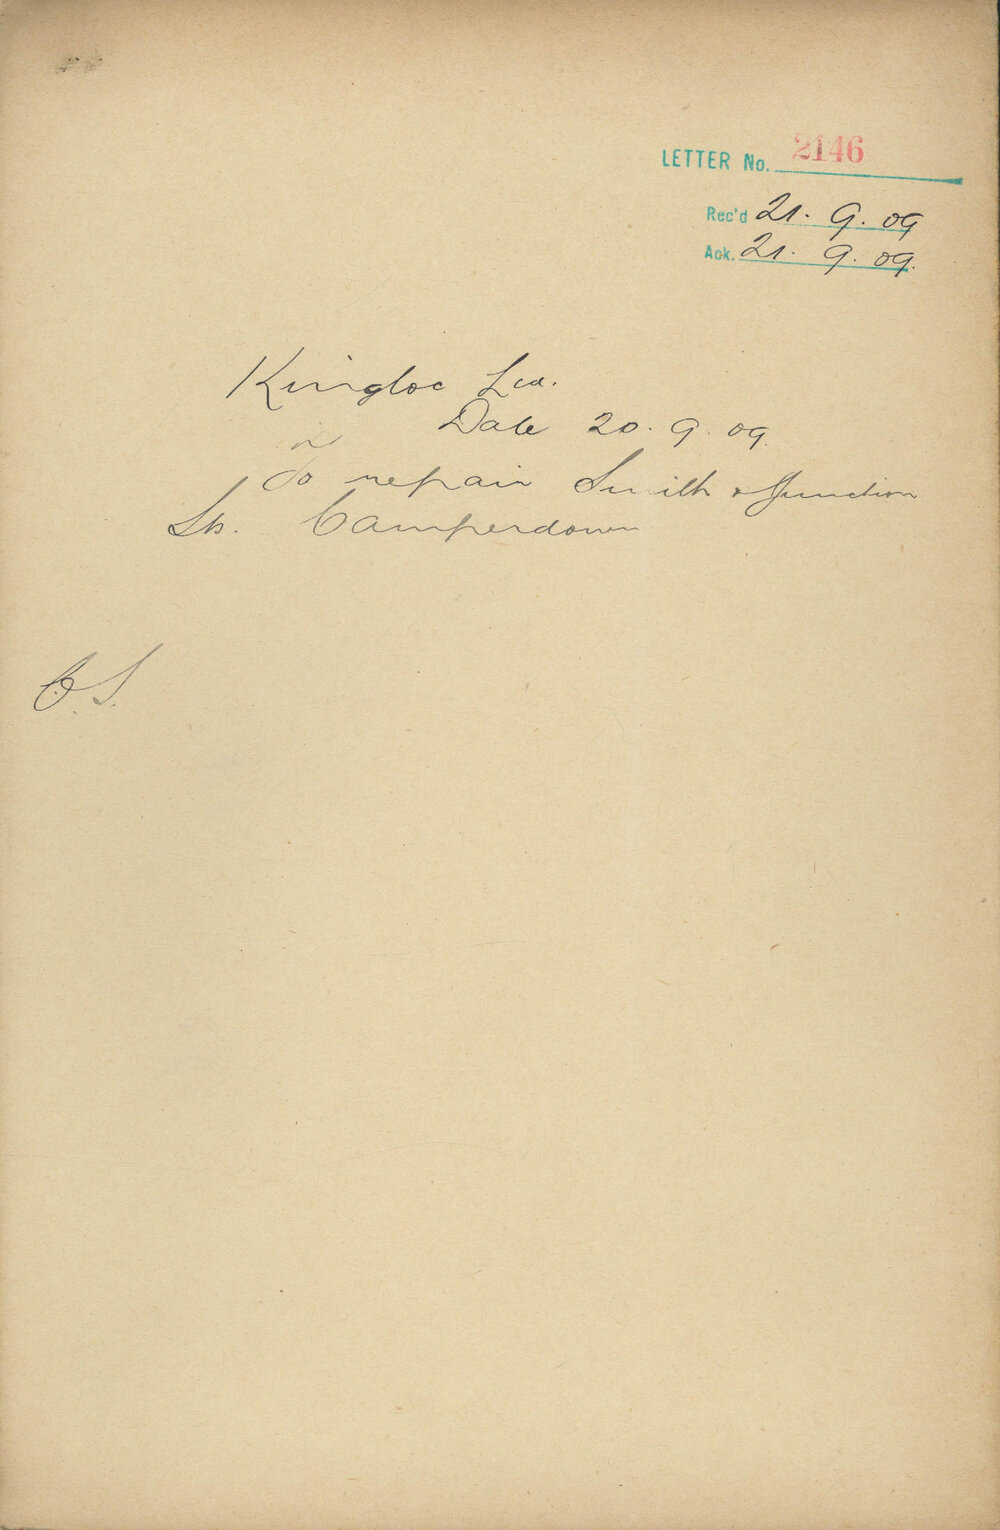 LETTER No. 2146
Rec'd 21. 9. 09
Ack. 21. 9. 09.
Kingloc Ltd.
Date 20. 9. 09.
To repair Smith & Junction
Sts. Camperdown
C.S.